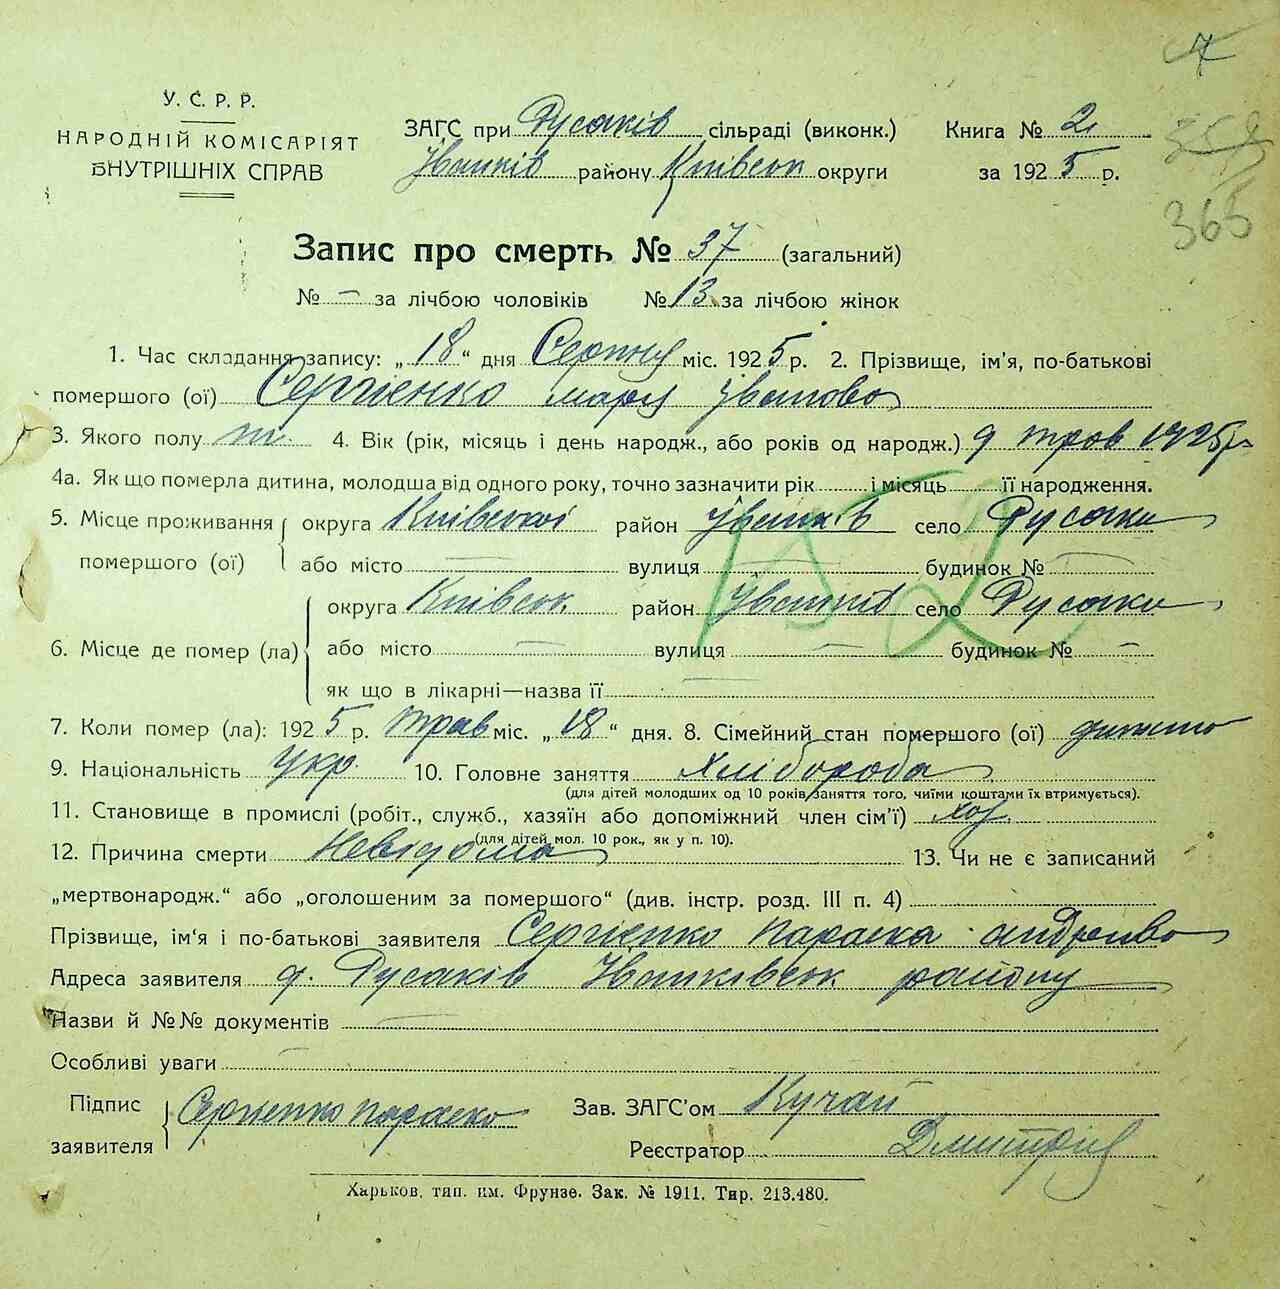 7
У. С. Р. Р.
НАРОДНІЙ КОМІСАРІЯТ
ВНУТРІШНІХ СПРАВ
ЗАГС при Русаків сільраді (виконк.)
Іванків району Київськ округи
Книга № 2
за 1925 р.
358
365
Запис про смерть № 37 (загальний)
№ — за лічбою чоловіків № 13 за лічбою жінок
1. Час складання запису: „18“ дня Серпня міс. 1925 р. 2. Прізвище, ім'я, по-батькові
помершого (ої) Сергієнко Марія Іванова
3. Якого полу ж. 4. Вік (рік, місяць і день народж., або років од народж.) 9 трав 1925 р
4а. Як що померла дитина, молодша від одного року, точно зазначити рік і місяць її народження.
5. Місце проживання помершого (ої) округа Київської район Іванків село Русаки
або місто — вулиця — будинок № —
6. Місце де помер (ла) округа Київськ район Іванків село Русаки
або місто — вулиця — будинок № —
як що в лікарні—назва її —
7. Коли помер (ла): 1925 р. Трав міс. „18“ дня. 8. Сімейний стан помершого (ої) дитина
9. Національність Укр. 10. Головне заняття Хлібороба
(для дітей молодших од 10 років заняття того, чиїми коштами їх втримується).
11. Становище в промислі (робіт., служб., хазяїн або допоміжний член сім'ї) хаз
(для дітей мол. 10 рок., як у п. 10).
12. Причина смерти Невідома 13. Чи не є записаний
„мертвонародж.“ або „оголошеним за помершого“ (див. інстр. розд. III п. 4)
Прізвище, ім'я і по-батькові заявителя Сергієнко Параска Андріїва
Адреса заявителя с. Русаків Іванківськ району
Назви й №№ документів —
Особливі уваги —
Підпис заявителя Сергієнко Параска
Зав. ЗАГС'ом Кучай
Реєстратор
Харьков, тип. им. Фрунзе. Зак. № 1911. Тир. 213.480.